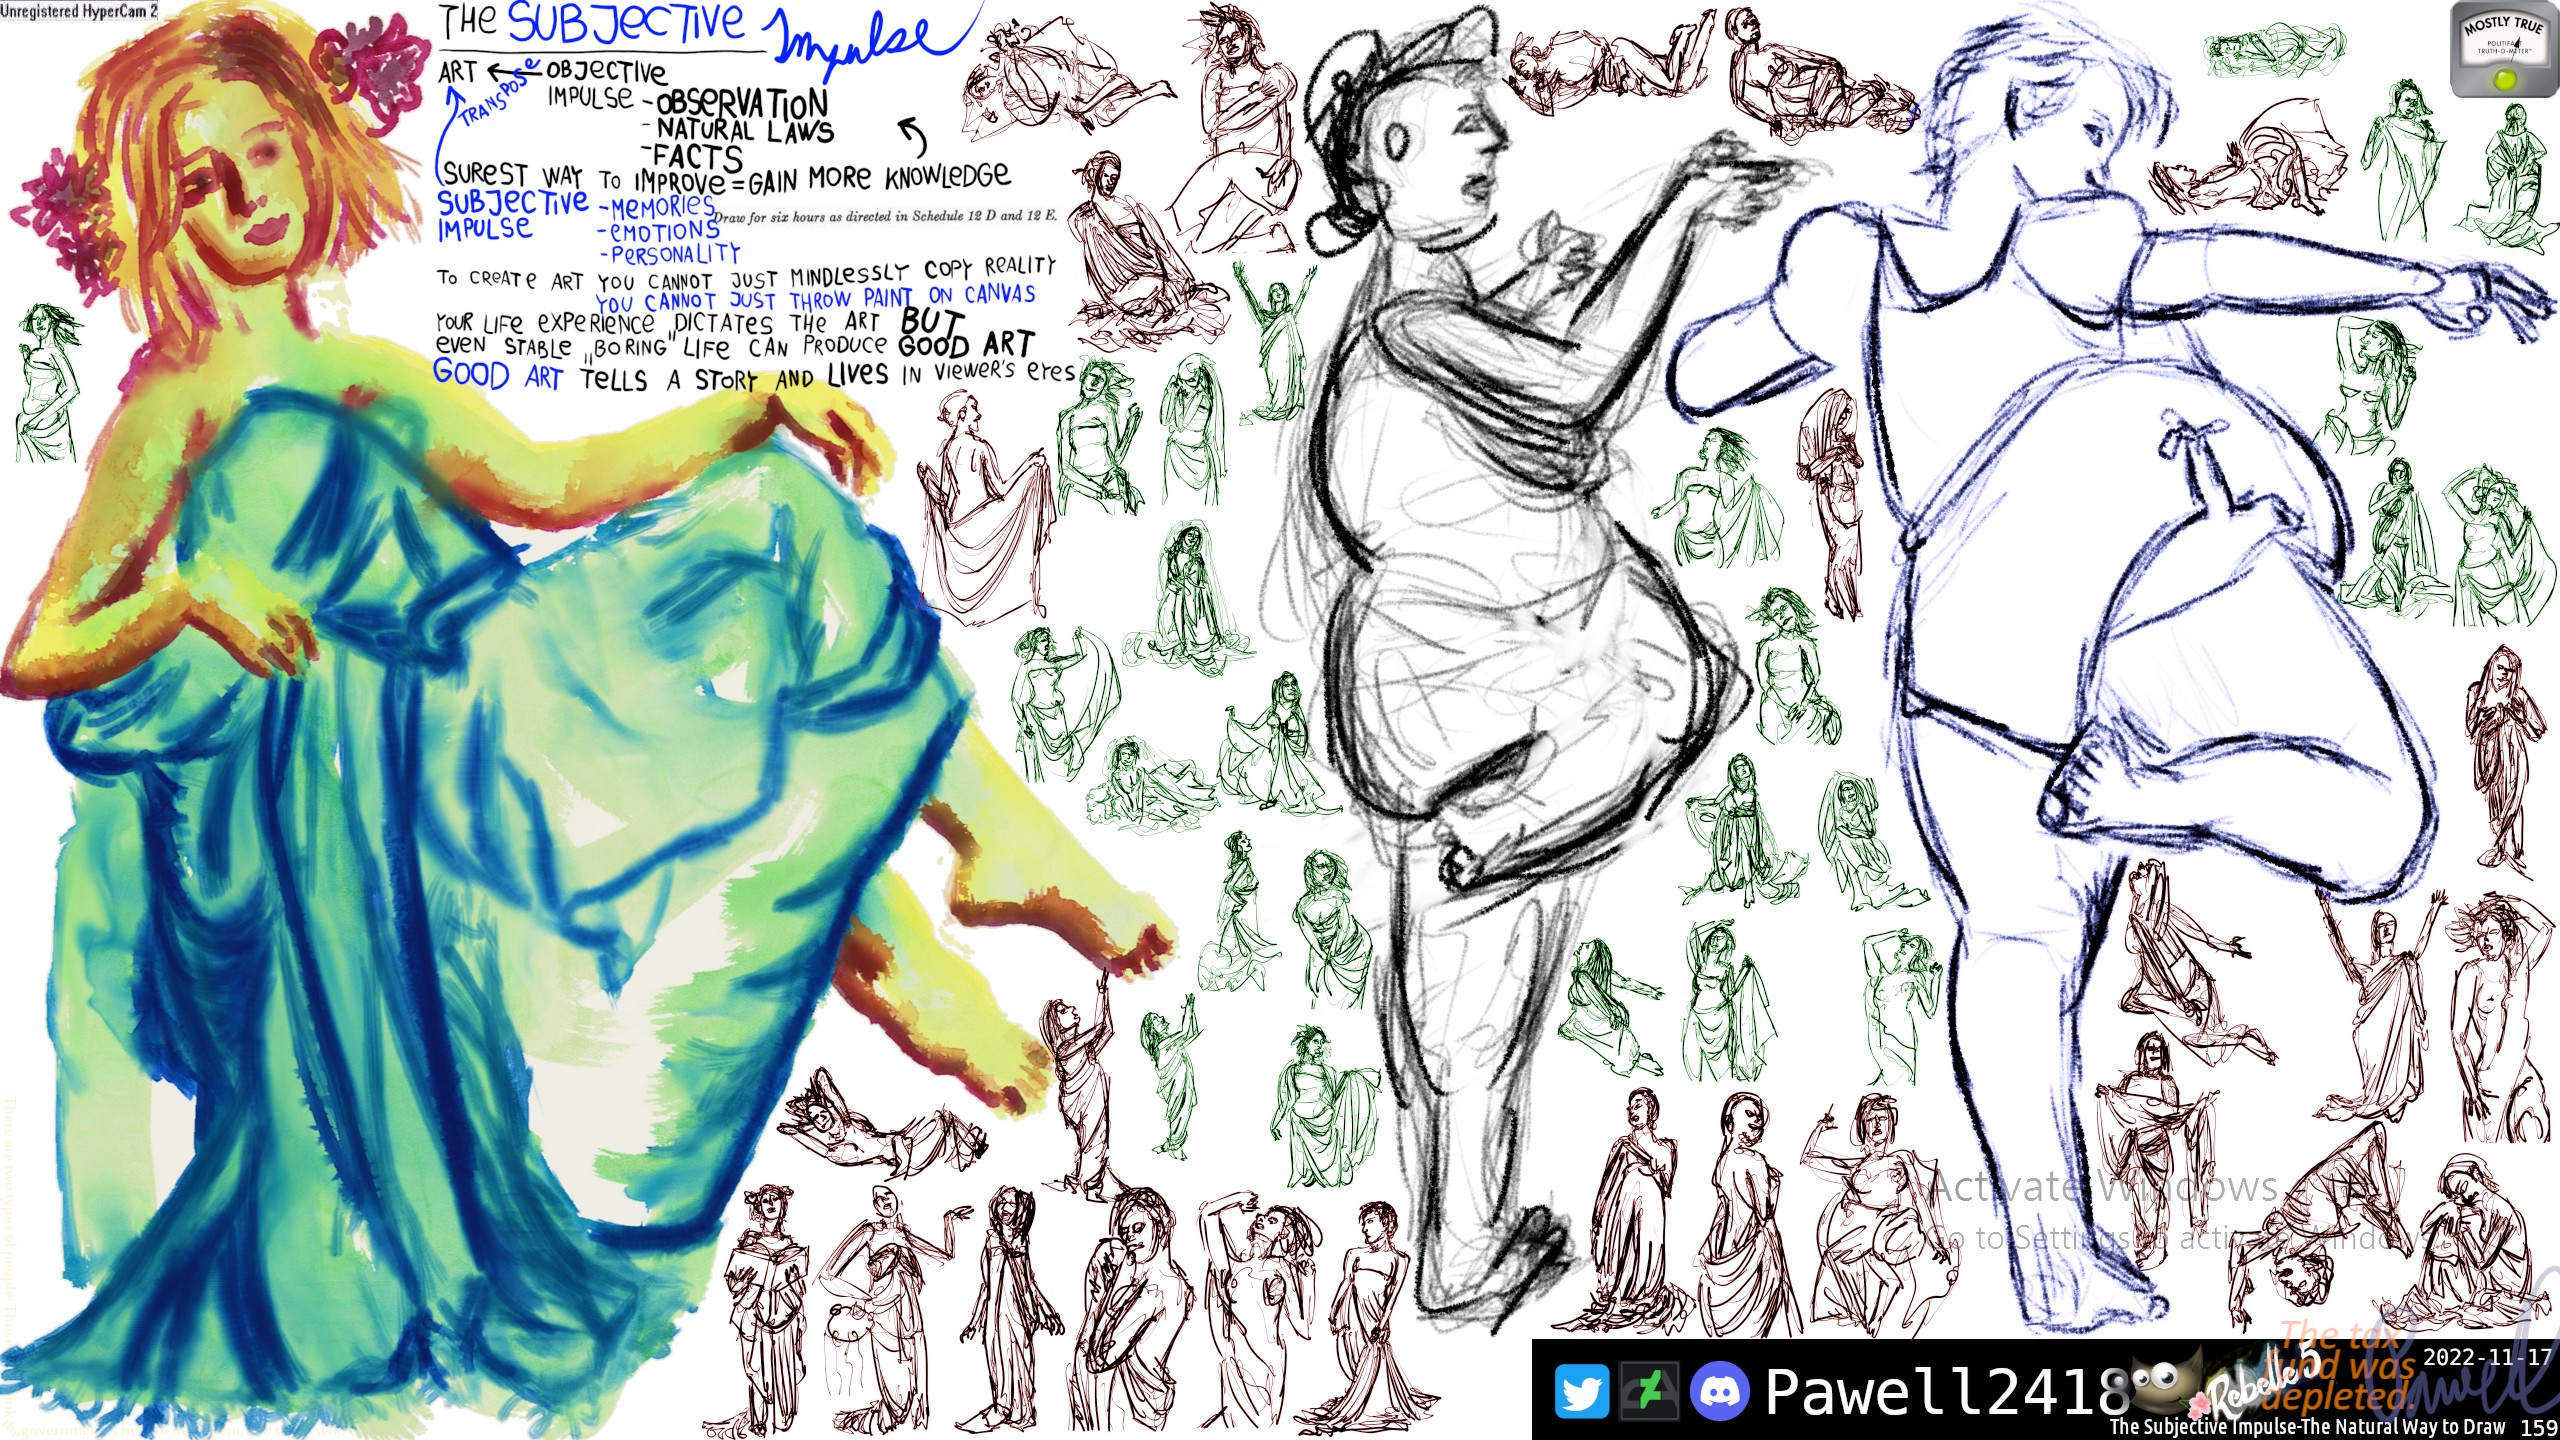 Unregistered HyperCam 2
THE SUBJECTIVE Impulse
ART ← OBJECTIVE
TRANSPOSE
IMPULSE - OBSERVATION
- NATURAL LAWS
- FACTS
SUREST WAY TO IMPROVE = GAIN MORE KNOWLEDGE
SUBJECTIVE - MEMORIES
Draw for six hours as directed in Schedule 12 D and 12 E.
IMPULSE - EMOTIONS
- PERSONALITY
TO CREATE ART YOU CANNOT JUST MINDLESSLY COPY REALITY
YOU CANNOT JUST THROW PAINT ON CANVAS
YOUR LIFE EXPERIENCE DICTATES THE ART BUT
EVEN STABLE „BORING" LIFE CAN PRODUCE GOOD ART
GOOD ART TELLS A STORY AND LIVES IN VIEWER'S EYES
MOSTLY TRUE
POLITIFACT
TRUTH-O-METER™
Activate Windows
Go to Settings to activate Windows.
Pawell2418
Rebelle 5
The tax
fund was
depleted.
2022-11-17
The Subjective Impulse-The Natural Way to Draw 159